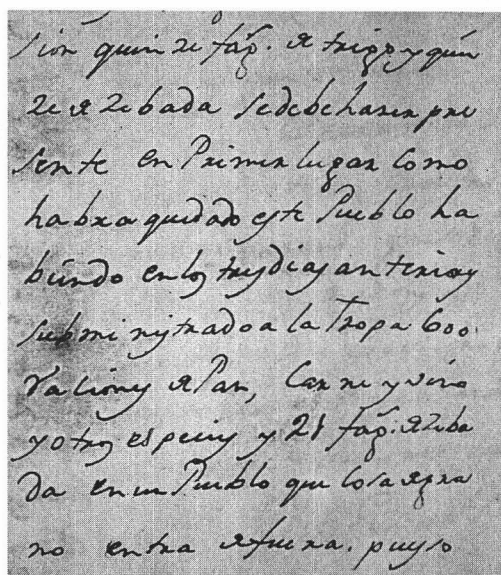 sion quinze fañ. de trigo y quin
ze de zebada se debe hazer pre
sente en Primer lugar como
habra quedado este Pueblo ha
biendo en los tres dias anteriores
subministrado a la Tropa 600
raciones de Pan, Carne y vino
y otras especies y 21 fañ. de zeba
da en un Pueblo que cosa de gra
no entra de fuera. pues